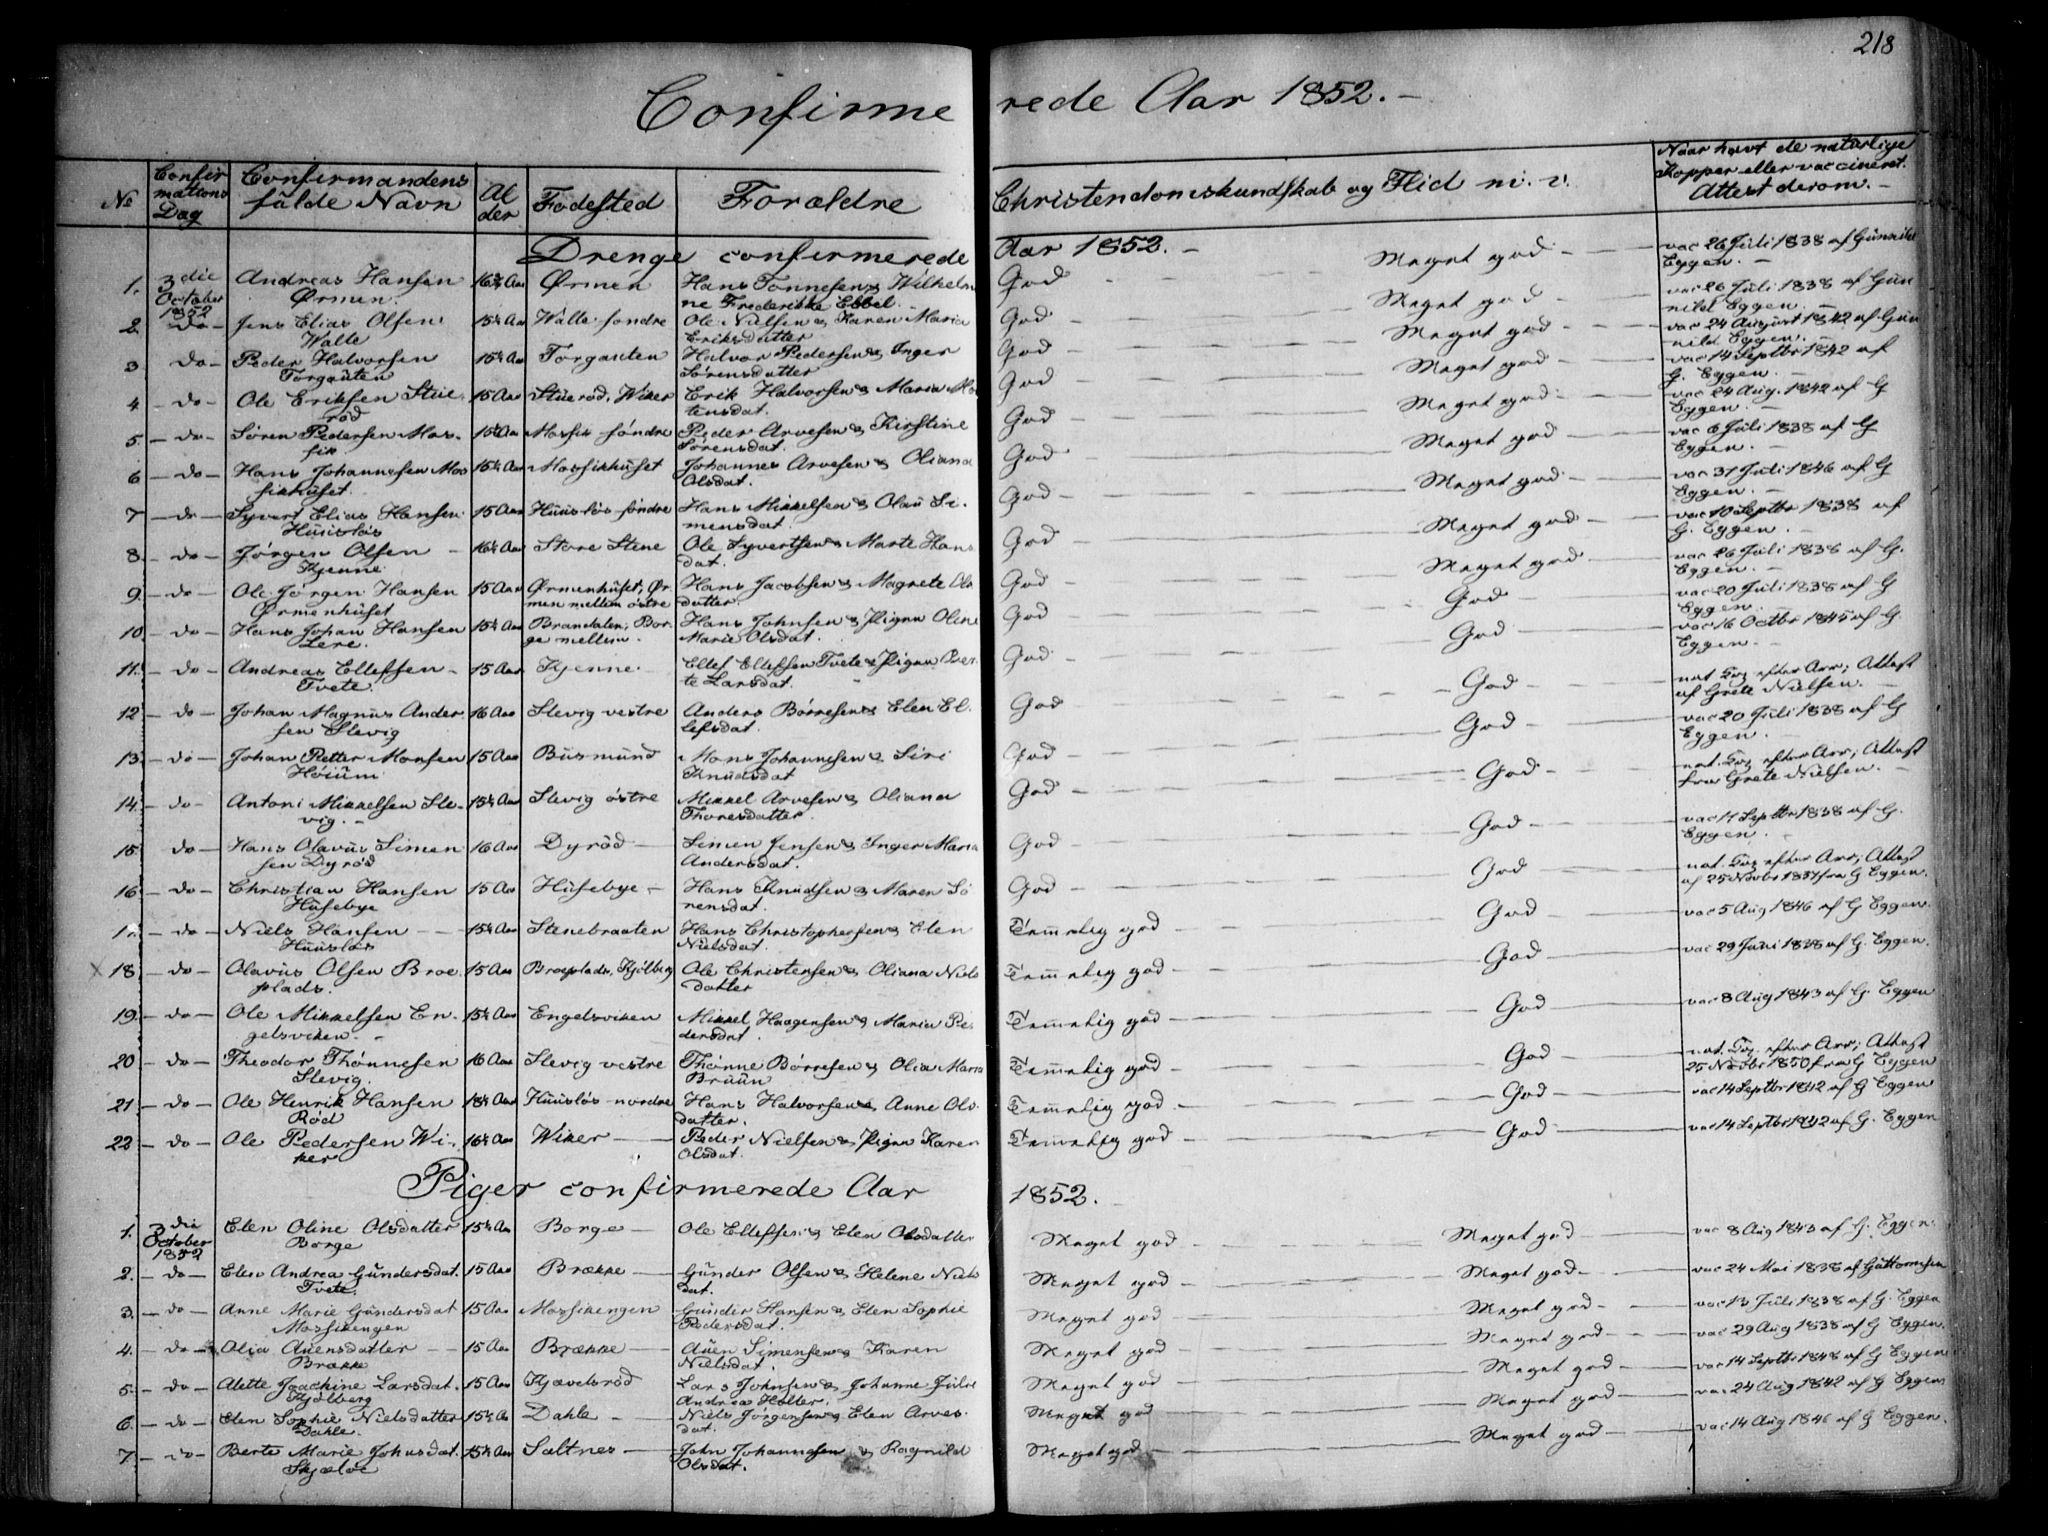 218
Confirmerede Aar 1852.
No
Confirmations Dag
Confirmandens fulde Navn
Alder
Fødested
Forældre
Christendomskundskab og Flid m. v.
Naar havt de naturlige Kopper eller vaccineret. Attest derom.
Drenge confirmerede Aar 1852.
1. 3die October 1852 Andreas Hansen Ørmen. Aar Ørmen Hans Tønnesen & Wilhelmine Frederikke Ebbel. God Meget god vac 26 Juli 1838 af Gunnild Eggen.
2. do Jens Elias Olsen Walle 15½ Aar Walle søndre Ole Nielsen & Karen Maria Eriksdatter God Meget god vac 26 Juli 1838 af Gunnild Eggen.
3. do Peder Halvorsen Torgauten 15½ Aar Torgauten Halvor Pedersen & Inger Sørensdatter God Meget god vac 24 August 1842 af Gunnild Eggen.
4. do Ole Eriksen Stuerød 15 Aar Stuerød, Wiker Erik Halvorsen & Maria Mortensdat. God Meget god vac 14 Septbr 1842 af G. Eggen.
5. do Søren Pedersen Mossik 15½ Aar Mossik søndre Peder Arvesen & Kirstine Sørensdat. God Meget god vac 24 Aug. 1842 af G Eggen.
6 do Hans Johannesen Mossikhuset. 15½ Aar Mossikhuset Johannes Arvesen & Oliana Olsdat. God Meget god vac 6 Juli 1838 af G Eggen.
7 do Syvert Elias Hansen Huusløs 15 Aar Huusløs søndre Hans Mikkelsen & Olau Simensdat. God Meget god vac 31 Juli 1846 af G Eggen.
8. do Jørgen Olsen Kjenne 16½ Aar Store Stene Ole Syvertsen & Marte Hansdat. God Meget god vac 10 Septbr 1838 af G. Eggen.
9. do Ole Jørgen Hansen Ørmenhuset 15 Aar Ørmenhuset, Ørmen mellem østre Hans Jacobsen & Magrete Olsdatter. God Meget god vac 26 Juli 1838 af G. Eggen.
10. do Hans Johan Hansen Lere. 15½ Aar Brandalen, Borge mellem. Hans Johnsen & Pigen Oline Marie Olsdat. God God vac 20 Juli 1838 af G Eggen.
11. do Andreas Ellefsen Tvete. 15 Aar Kjenne Ellef Ellefsen Tvete & Pigen Berte Larsdat. God God vac 16 Octbr 1845 af G. Eggen.
12 do Johan Magnus Andersen Slevig 16 Aar Slevig vestre Anders Børresen & Elen Ellefsdat. God God nat. Kop. efter Arr; Attest af Grete Nielsen.
13. do Johan Petter Monsen Høium 15 Aar Busmund Mons Johannesen & Siri Knudsdat God God vac 20 Juli 1838 af G Eggen.
14. do Antoni Mikkelsen Slevig. 15½ Aar Slevig østre Mikkel Arvesen & Oliana Thoresdatter. God God nat. Kop efter Arr; Attest fra Grete Nielsen.
15. do Hans Olavus Simensen Dyrød 16 Aar Dyrød Simen Jensen & Inger Maria Andersdat. God God vac 11 Septbr 1838 af G. Eggen.
16. do Christian Hansen Husebye 15 Aar Husebye Hans Knudsen & Maren Sørensdat. God God nat. Kop efter Arr; Attest af 25 Novbr fra G Eggen.
do Niels Hansen Huusløs 15½ Aar Stenebraaten Hans Christophersen & Elen Nielsdat. Temmelig god God vac 5 Aug 1846 af G Eggen.
18. do Olavus Olsen Broeplads. 15 Aar Broeplads, Kjølberg Ole Christensen & Oliana Nielsdatter Temmelig god God vac 29 Juni 1838 af G. Eggen.
19. do Ole Mikkelsen Engelsviken. 15½ Aar Engelsviken Mikkel Haagensen & Maria Pedersdat. Temmelig god God vac 8 Aug 1843 af G. Eggen
20 do Theodor Thønnesen Slevig. 16 Aar Slevig vestre Thønne Børresen & Olia Maria Bruun Temmelig god God nat. Kop. efter Arr; Attest 25 Novbr 1850 fra G Eggen
21 do Ole Henrik Hansen Rød 18½ Aar Huusløs nordre Hans Halvorsen & Anne Olsdatter. Temmelig god God vac 14 Septbr 1842 af G Eggen
22 do Ole Pedersen Wiker 16½ Aar Wiker Peder Nielsen & Pigen Karen Olsdat. Temmelig god God vac 14 Septbr 1842 af G. Eggen
Piger confirmerede Aar 1852.
1. 3die October 1852 Elen Oline Olsdatter Borge 15½ Aar Borge Ole Ellefsen & Elen Olsdatter Meget god Meget god vac 8 Aug 1843 af G. Eggen.
2. do Elen Andrea Gundersdat. Tvete. 15 Aar Brække Gunder Olsen & Helene Nielsdat. Meget god Meget god vac 24 Mai 1838 af Guttormsen
3. do Anne Marie Gundersdat Mossikengen 15 Aar Mossikengen Gunder Hansen & Elen Sophie Pedersdat. Meget god Meget god vac 13 Juli 1838 af G. Eggen
4. do Olia Auensdatter Brække 15 Aar Brække Auen Simensen & Karen Nielsdat. Meget god Meget god vac 29 Aug 1838 af G Eggen.
5. do Alette Joachine Larsdat. Kjølberg 15 Aar Kjævelsrød Lars Johnsen & Johanne Julie Andrea Holter. Meget god Meget god vac 14 Septbr 1848 af G Eggen
6. do Elen Sophie Nielsdatter Dahle. 15½ Aar Dahle Niels Jørgensen & Elen Arvesdat. Meget god Meget god vac 24 Aug 1842 af G Eggen
7. do Berte Marie Johnsdat. Skjælve 15½ Aar Saltnes John Johannesen & Ragnild Olsdat. Meget god Meget god vac 14 Aug 1846 af G Eggen.